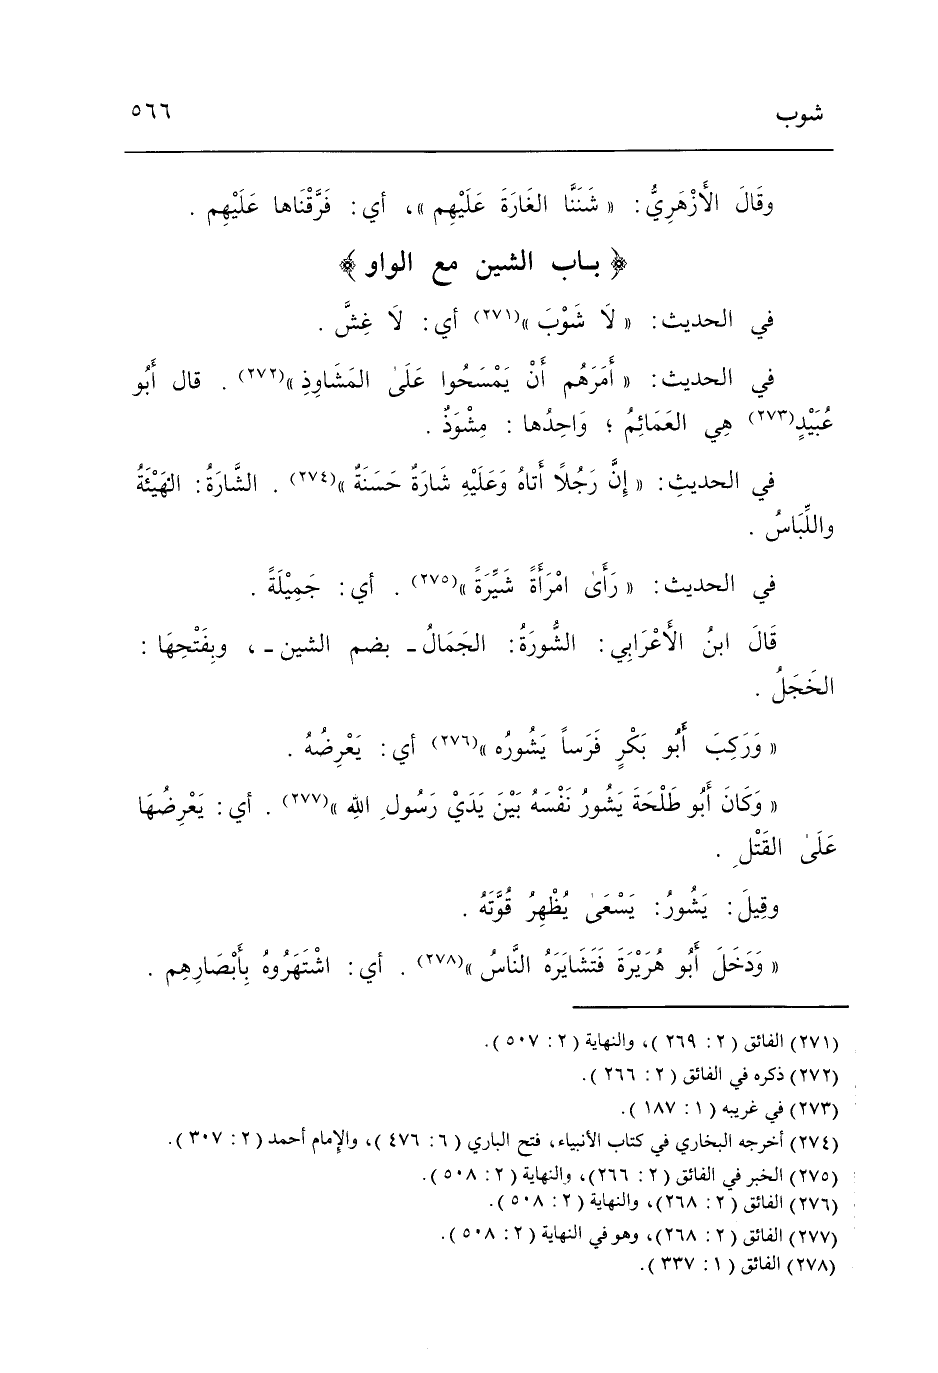 شوب ٥٦٦
وقَالَ الأَزْهَرِيُّ: « شَنَنَّا الغَارَةَ عَلَيْهِم »، أي: فَرَّقْنَاها عَلَيْهِم .
﴿ بـاب الشين مع الواو ﴾
في الحديث: « لَا شَوْبَ »(٢٧١) أي: لَا غِشَّ .
في الحديث: « أَمَرَهُم أَنْ يَمْسَحُوا عَلَىٰ المَشَاوِذِ »(٢٧٢) . قال أَبُو
عُبَيْدٍ(٢٧٣) هِي العَمَائِمُ ؛ وَاحِدُها : مِشْوَذٌ .
في الحديثِ: « إِنَّ رَجُلاً أَتاهُ وَعَلَيْهِ شَارَةٌ حَسَنَةٌ »(٢٧٤) . الشَّارَةُ: الهَيْئَةُ
واللِّبَاسُ .
في الحديث: « رَأَىٰ امْرَأَةً شَيِّرَةً »(٢٧٥) . أي: جَمِيْلَةً .
قَالَ ابنُ الأَعْرَابِي: الشُّورَةُ: الجَمَالُ ـ بضم الشين ـ ، وبِفَتْحِهَا :
الخَجَلُ .
« وَرَكِبَ أَبُو بَكْرٍ فَرَساً يَشُورُه »(٢٧٦) أي: يَعْرِضُهُ .
« وَكَانَ أَبُو طَلْحَةَ يَشُورُ نَفْسَهُ بَيْنَ يَدَيْ رَسُولِ اللهِ »(٢٧٧) . أي: يَعْرِضُهَا
عَلَىٰ القَتْلِ .
وقِيلَ: يَشُورُ: يَسْعَىٰ يُظْهِرُ قُوَّتَهُ .
« وَدَخَلَ أَبُو هُرَيْرَةَ فَتَشَايَرَهُ النَّاسُ »(٢٧٨) . أي: اشْتَهَرُوهُ بِأَبْصَارِهِم .
(٢٧١) الفائق ( ٢ : ٢٦٩ )، والنهاية ( ٢ : ٥٠٧ ).
(٢٧٢) ذكره في الفائق ( ٢ : ٢٦٦ ).
(٢٧٣) في غريبه ( ١ : ١٨٧ ).
(٢٧٤) أخرجه البخاري في كتاب الأنبياء، فتح الباري ( ٦ : ٤٧٦ )، والإمام أحمد ( ٢ : ٣٠٧ ).
(٢٧٥) الخبر في الفائق ( ٢ : ٢٦٦)، والنهاية ( ٢ : ٥٠٨ ).
(٢٧٦) الفائق ( ٢ : ٢٦٨)، والنهاية ( ٢ : ٥٠٨ ).
(٢٧٧) الفائق ( ٢ : ٢٦٨)، وهو في النهاية ( ٢ : ٥٠٨ ).
(٢٧٨) الفائق ( ١ : ٣٣٧ ).